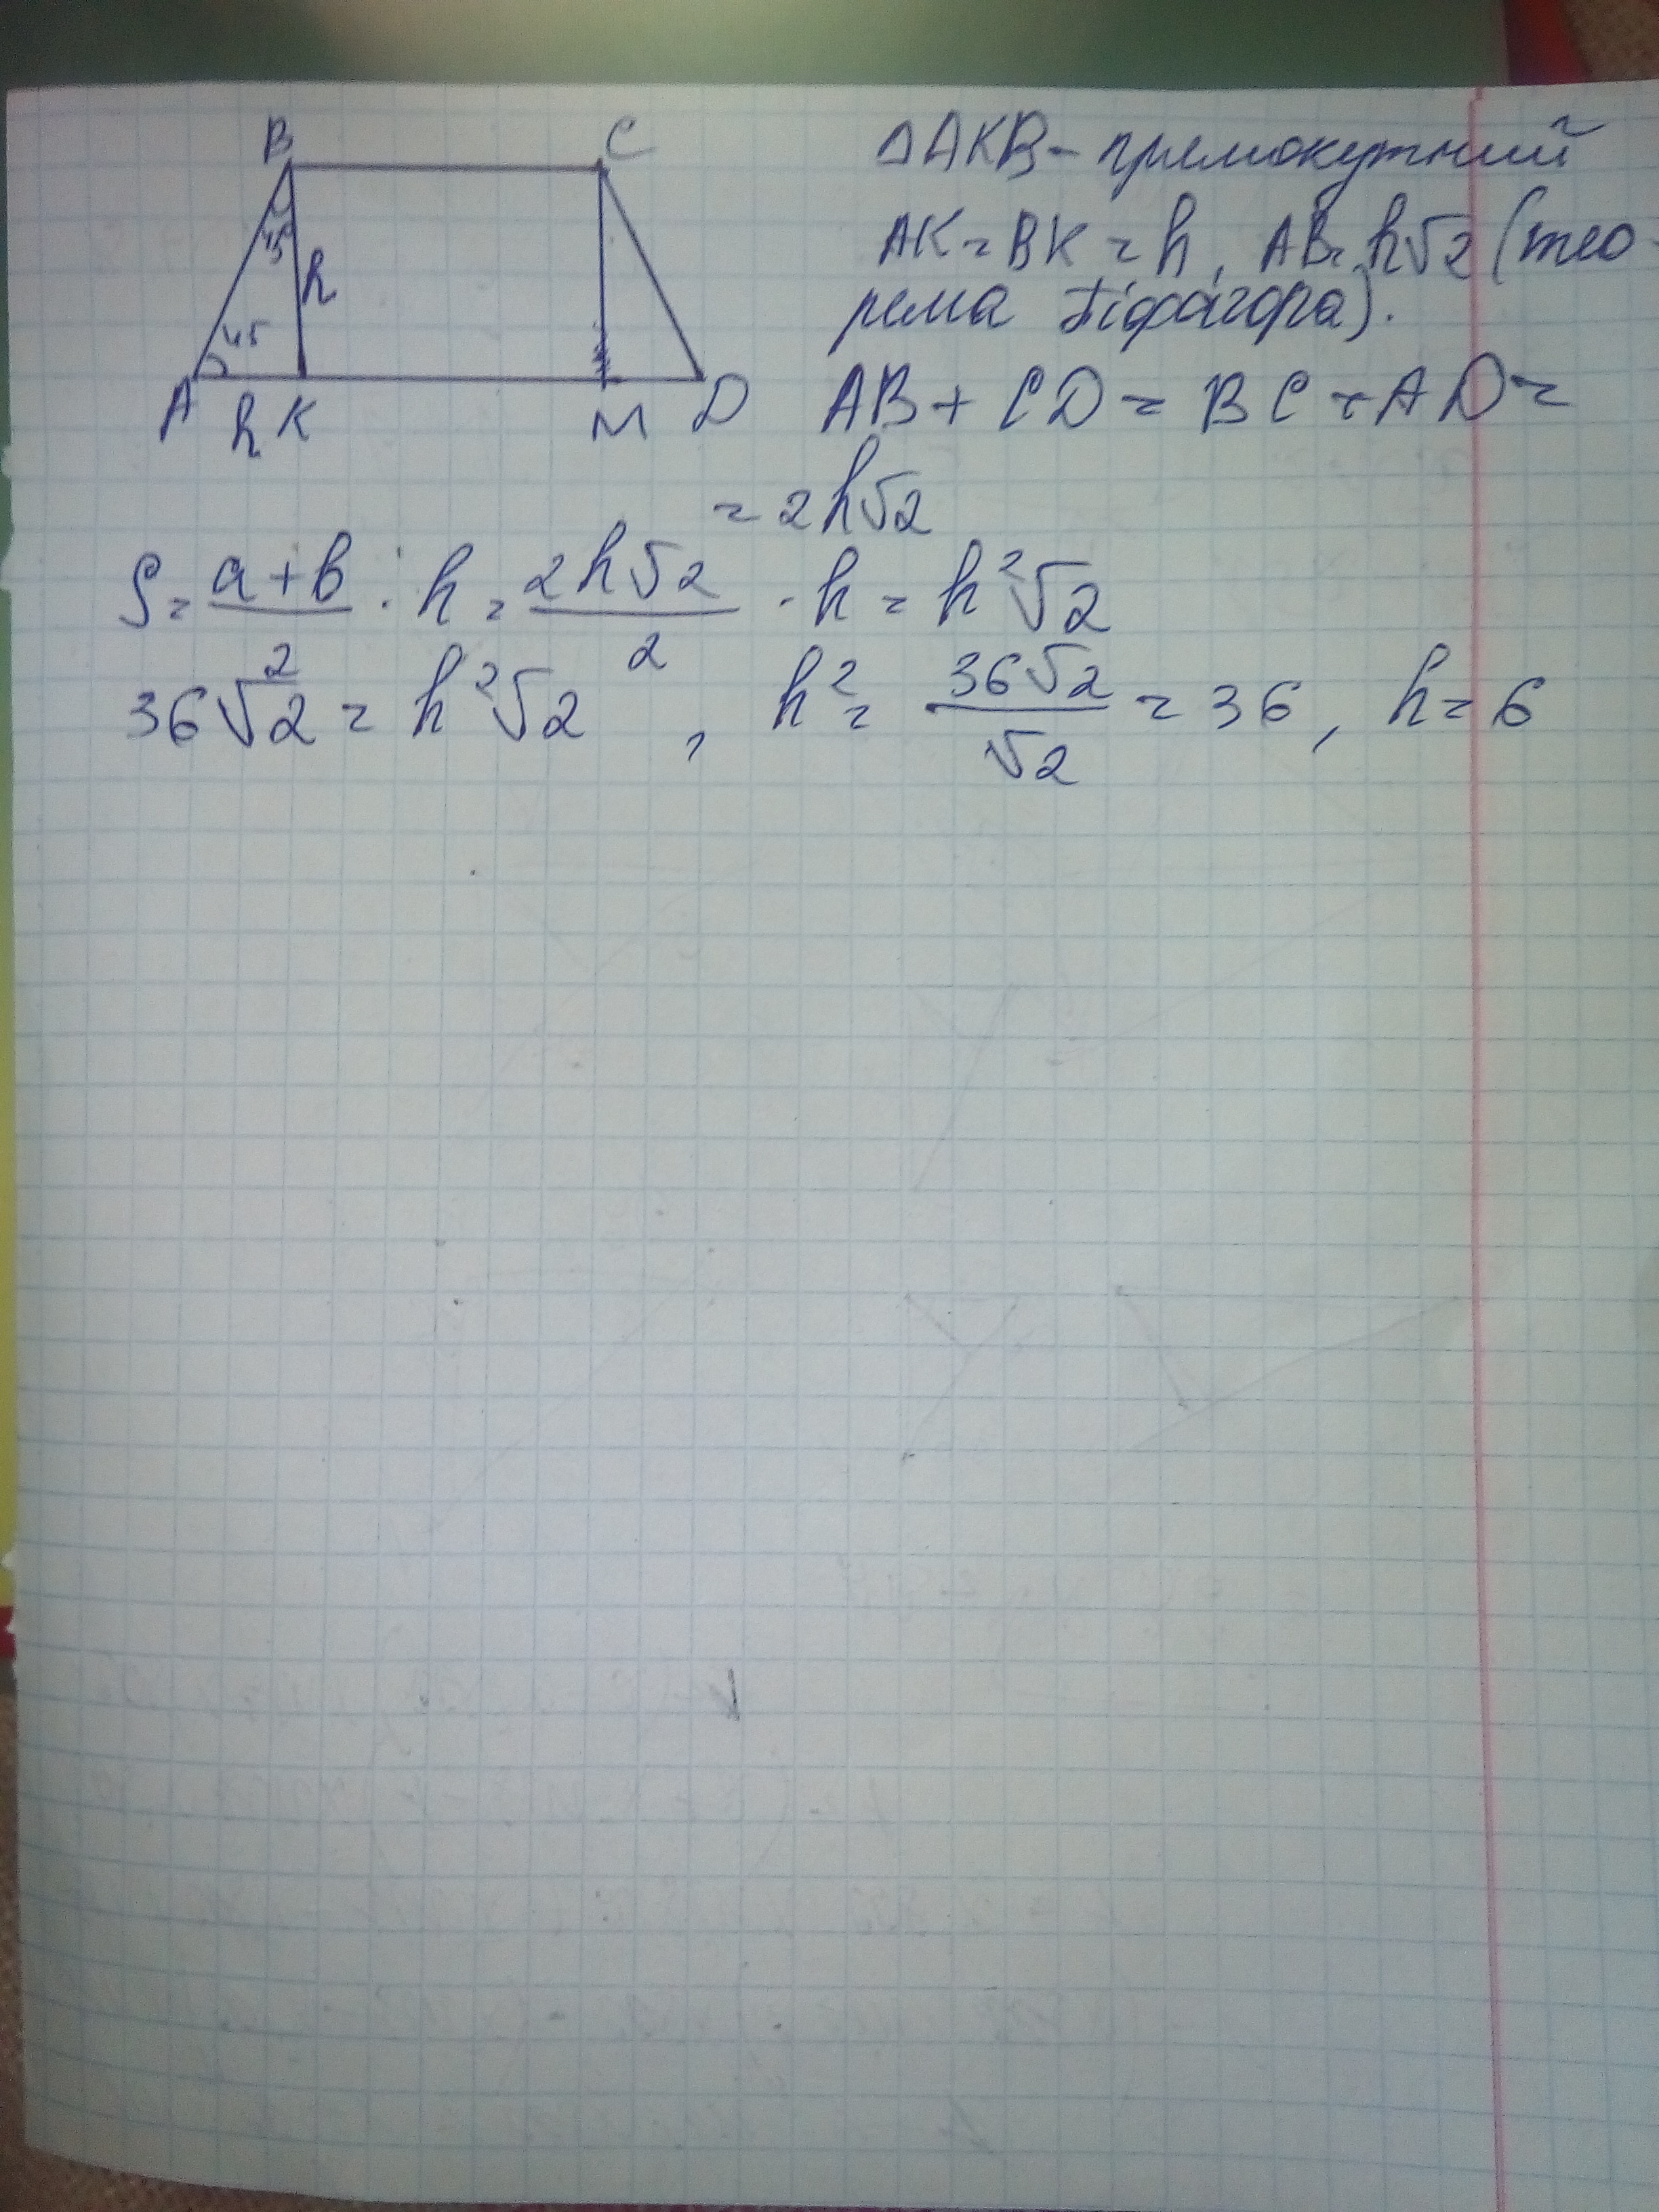 B C
45
h
45
A h K M D
△AKB - прямокутний
AK = BK = h, AB = h√2 (тео-
рема Піфагора).
AB + CD = BC + AD =
= 2h√2
S = a+b/2 · h = 2h√2/2 · h = h²√2
36√2 = h²√2, h² = 36√2/√2 = 36, h = 6